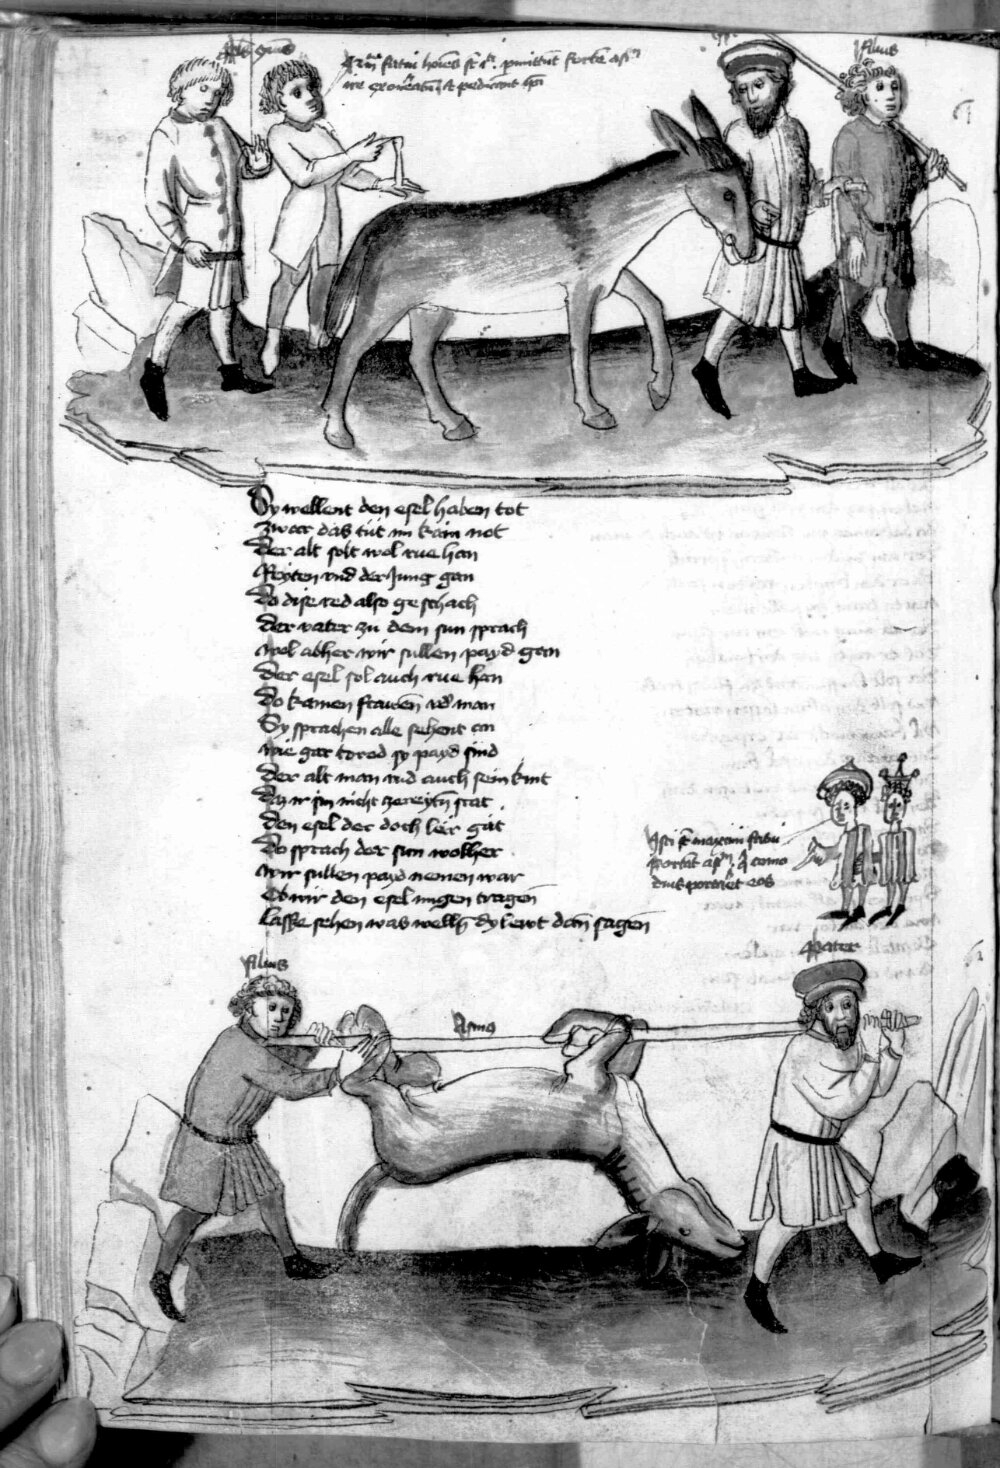 filius
Sy wellent den esel haben tot
zwar das tüt im kain not
Der alt solt wol rue han
Reyten vnd der Jung gan
Do dise red also geschach
Der vater zu dem sun sprach
wol abher wir sullen payd gan
Der esel sol auch rue han
Do kamen frawen vnd man
Sy sprachen alle sehent an
wie gar tored sy payd sind
Der alt man vnd auch sein kint
Den esel der doch lër gat
Do sprach der sun wolher
wir sullen payd nemen war
Ob wir den esel mugen tragen
Lasse sehen was dy lewt dan sagen
Isti st maximi fatui
portat
filius
Asinus
Pater